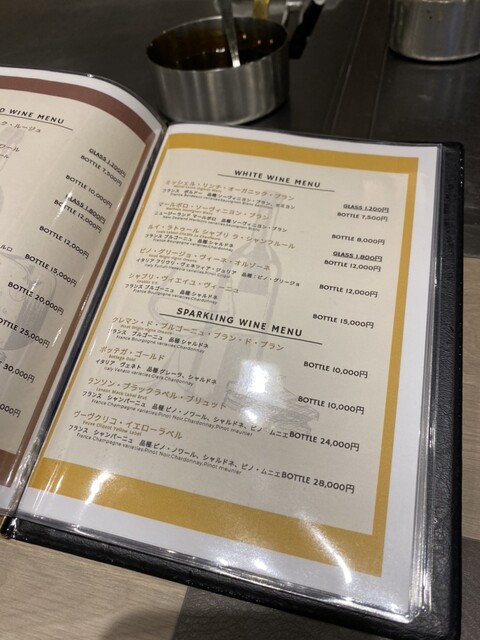 D WINE MENU
ク・ルージュ
GLASS 1,200円
BOTTLE 7,500円
BOTTLE 10,000円
GLASS 1,800円
BOTTLE 12,000円
BOTTLE 12,000円
BOTTLE 15,000円
BOTTLE 20,000円
BOTTLE 25,000円
30,000円
WHITE WINE MENU
ミッシェル・リンチ・オーガニック・ブラン
フランス ボルドー 品種ソーヴィニヨン・ブラン、セミヨン
GLASS 1,200円
BOTTLE 7,500円
マールボロ・ソーヴィニヨン・ブラン
ニュージーランド マールボロ 品種ソーヴィニヨン・ブラン
BOTTLE 8,000円
ルイ・ラトゥール シャブリ ラ・シャンフルール
フランス ブルゴーニュ 品種シャルドネ
GLASS 1,800円
BOTTLE 12,000円
ピノ・グリージョ・ヴィーネ・オルソーネ
イタリア フリウリ・ヴェネツィア・ジュリア 品種：ピノ・グリージョ
BOTTLE 12,000円
シャブリ・ヴィエイユ・ヴィーニュ
フランス ブルゴーニュ 品種シャルドネ
France Bourgogne varecies:Chardonnay
BOTTLE 15,000円
SPARKLING WINE MENU
クレマン・ド・ブルゴーニュ・ブラン・ド・ブラン
フランス ブルゴーニュ 品種シャルドネ
France Bourgogne varecies:Chardonnay
BOTTLE 10,000円
ボッテガ・ゴールド
Bottega Gold
イタリア ヴェネト 品種グレーラ、シャルドネ
Italy Veneto varecies:Glera,Chardonnay
BOTTLE 10,000円
ランソン・ブラックラベル・ブリュット
Lanson Black Label Brut
フランス シャンパーニュ 品種ピノ・ノワール、シャルドネ、ピノ・ムニエ
France Champagne varecies:Pinot Noir,Chardonnay,Pinot meunier
BOTTLE 24,000円
ヴーヴクリコ・イエローラベル
Veuve Cliquot Yellow Label
フランス シャンパーニュ 品種ピノ・ノワール、シャルドネ、ピノ・ムニエ
France Champagne varecies:Pinot Noir,Chardonnay,Pinot meunier
BOTTLE 28,000円